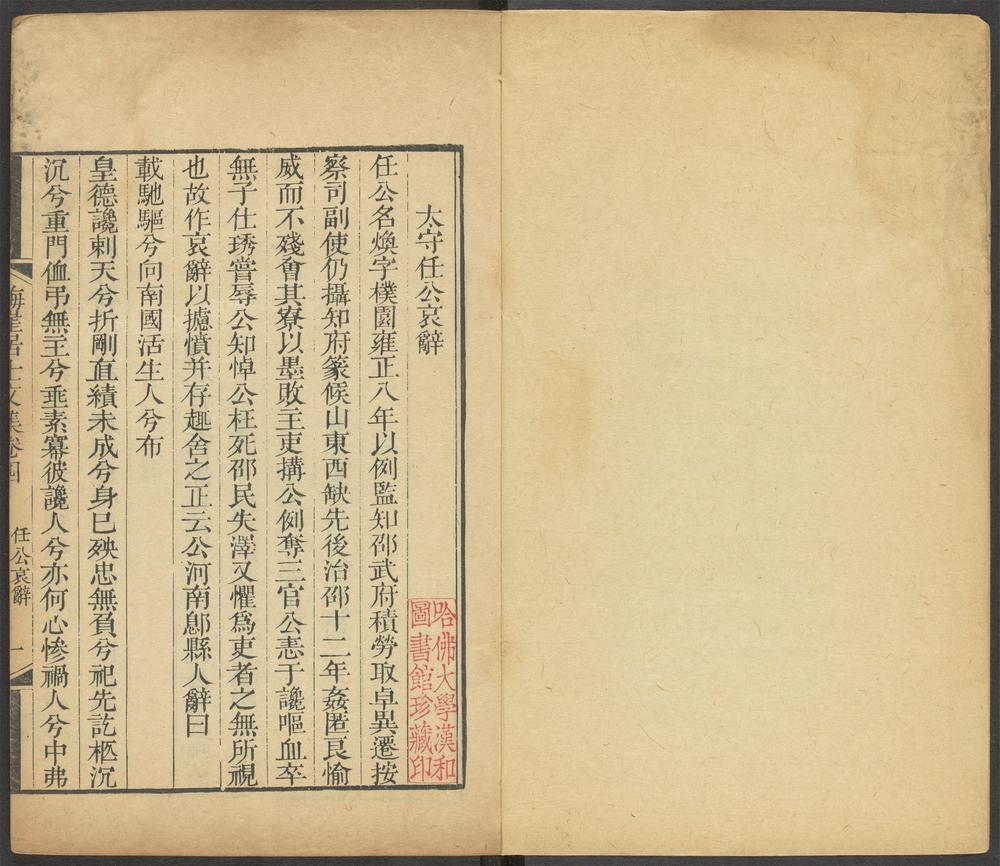 太守任公哀辭
任公名煥字樸園雍正八年以例監知邵武府積勞取卓異遷按
察司副使仍攝知府篆候山東西缺先後治邵十二年姦匿良愉
威而不殘會其寮以墨敗主吏搆公例奪三官公恚于讒嘔血卒
無子仕琇嘗辱公知悼公枉死邵民失澤又懼爲吏者之無所視
也故作哀辭以攄憤并存趣舍之正云公河南郾縣人辭曰
載馳驅兮向南國活生人兮布
皇德讒剌天兮折剛直績未成兮身已殃忠無負兮祀先訖柩沉
沉兮重門侐弔無主兮垂素冪彼讒人兮亦何心慘禍人兮中弗
梅崖居士文集卷四
任公哀辭
一
哈佛大學漢和
圖書館珍藏印